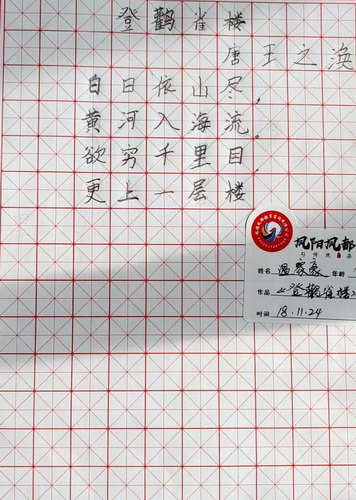 登鹳雀楼
唐 王之涣
白日依山尽,
黄河入海流。
欲穷千里目,
更上一层楼
凤阳凤都
姓名 温家豪 年龄
作品 《登鹳雀楼》
时间 18.11.24